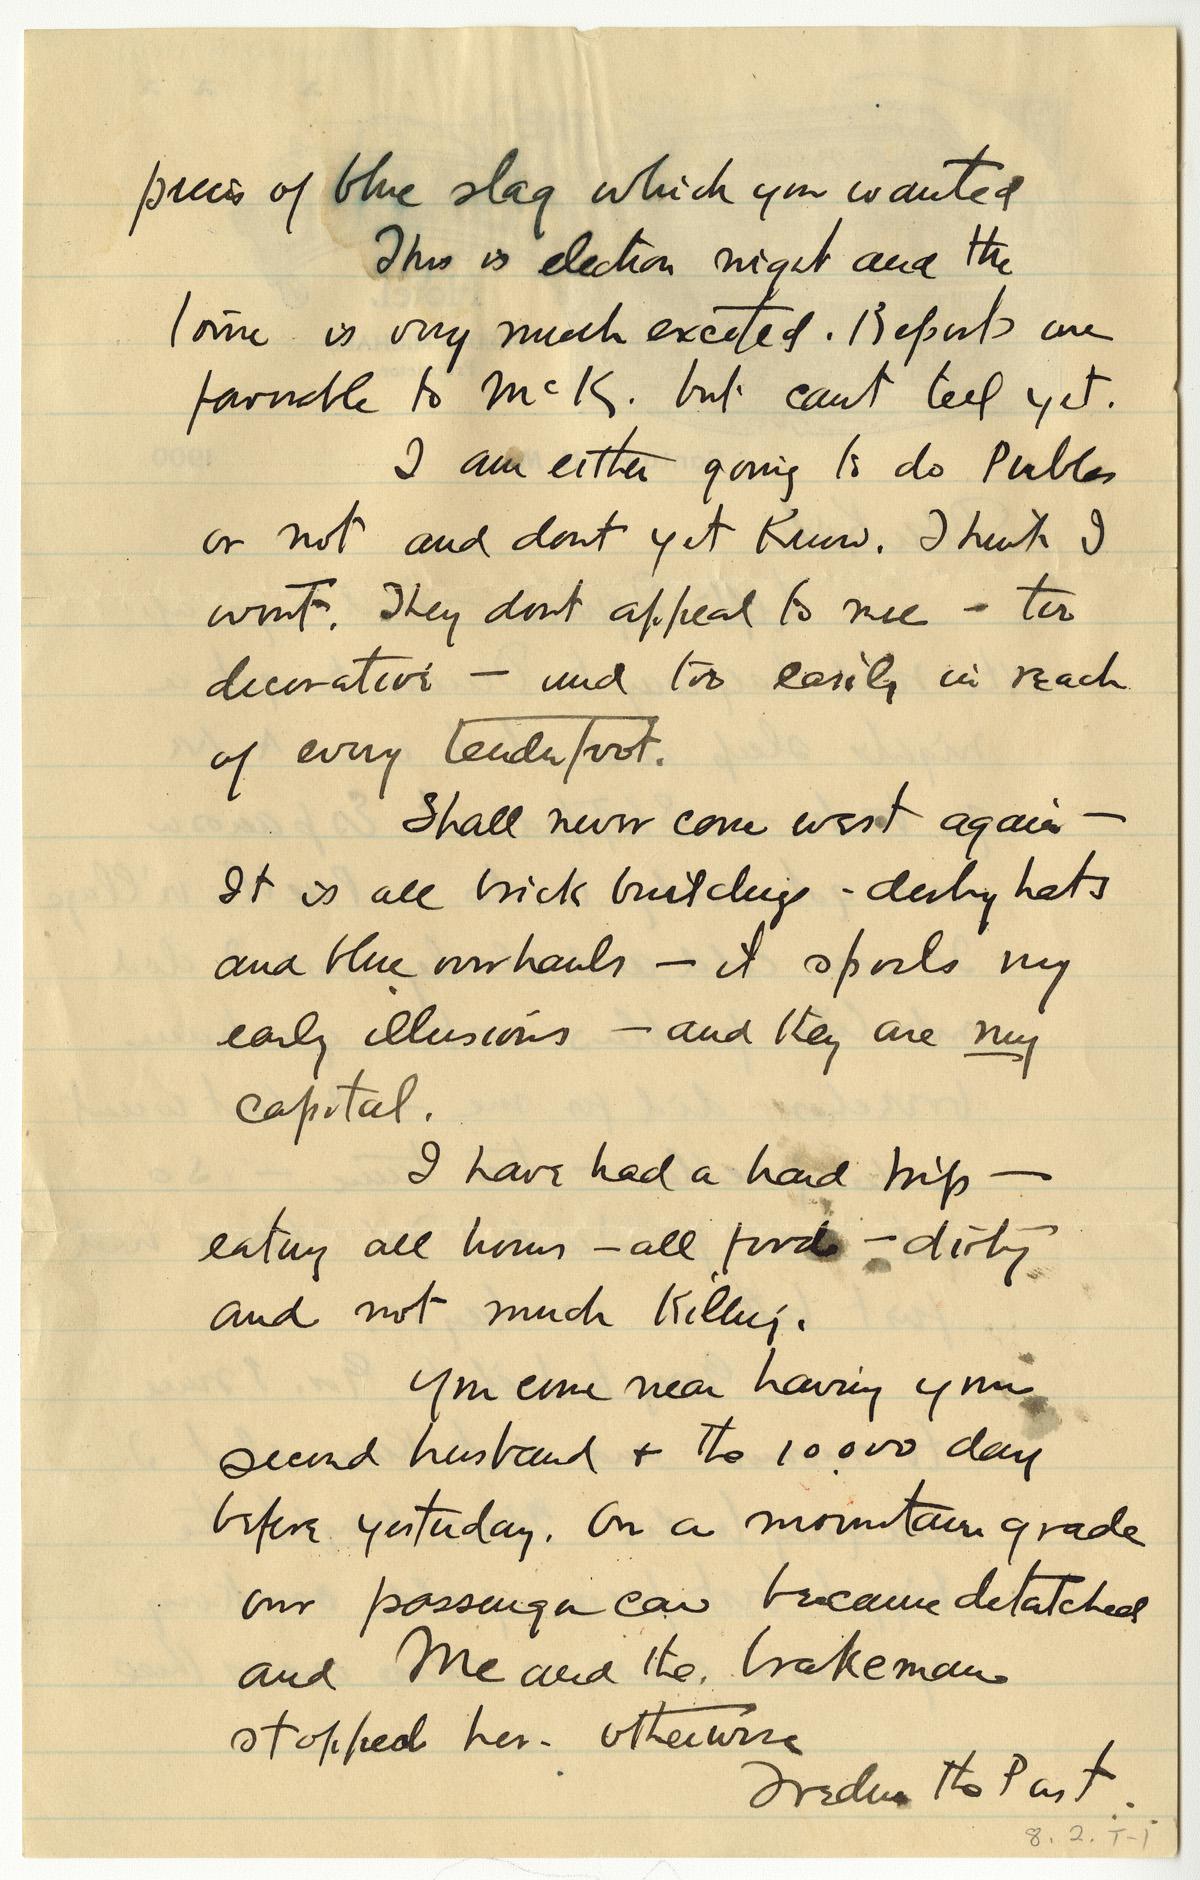 precis of blue slag which you wanted
This is election night and the
towne is very much excited. Reports are
favorable to McK. but cant tell yet.
I am either going to do Publos
or not and dont yet Know. Think I
wont. They dont appeal to me - too
decorative — and too easily in reach
of every tenderfoot.
Shall never come west again —
It is all brick buildings - derby hats
and blue overhauls — it spoils my
early illusions — and they are my
capital.
I have had a hard trip —
eating all hours — all foods — dirty
and not much Killing.
You come near having your
second husband + the 10.000 day
before yesterday. On a mountain grade
our passenger car became detatched
and Me and the brakeman
stopped her - otherwise
Frederic the Past.
8. 2. T-1